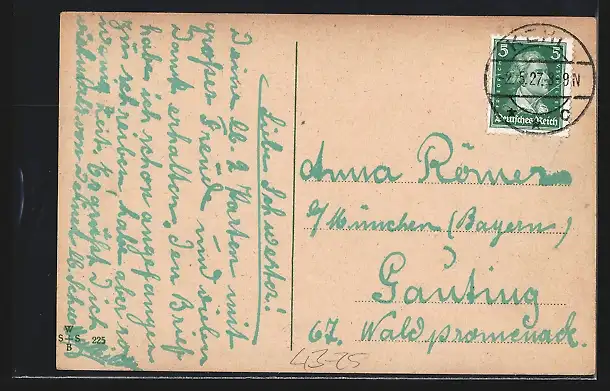 Liebe Schwester!
Deine lb. 2 Karten mit
großer Freud und vielen
Dank erhalten. Den Brief
habe ich schon angefangen
zu schreiben habe aber so
wenig Zeit. Es grüßt Dich
5 5
Deutsches Reich
2.5.27. 8-9N
C
Anna Römer
b/München (Bayern)
Gauting
67. Waldpromenade.
W
S+S 225
B
43-25